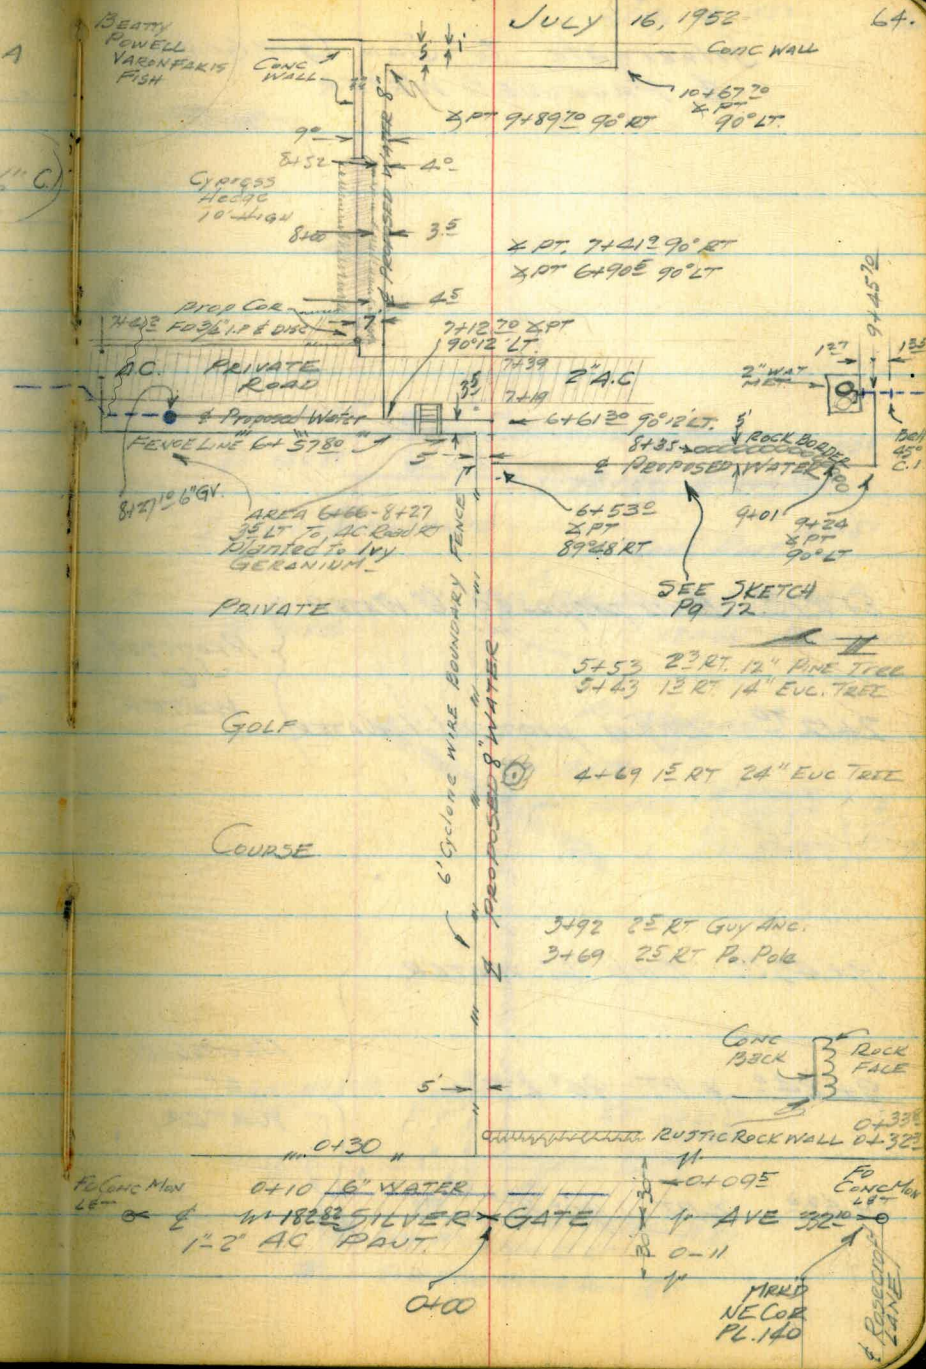 JULY 16, 1952
64.
BEATTY
POWELL
VARONFAKIS
FISH
A
CONC
WALL
5
1'
CONC WALL
10+67 70
∠ PT
90° LT.
∠ PT 9+89 70 90° RT
9 0
8+52
4 0
" C.I
Cypress
Hedge
10' HIGH
8+00
3 5
℄ PROPOSED WATER 8"
∠ PT. 7+41 9 90° RT
∠ PT 6+90 5 90° LT
4 5
9+45 70
PROP COR
FD 3/4" I.P & DISC
7'
7+12 70 ∠ PT
90°12' LT.
A.C. PRIVATE
ROAD
7+39
2" A.C
7+19
2" WAT
MET.
3 5
℄ Proposed Water
6+61 30 90°12' LT.
5'
FENCE LINE 6+57 80
5'
8+35
ROCK BORDER
℄ PROPOSED WATER
45°
C.I
8+27 10 6" GV.
AREA 6+66-8+27
3 5 LT To AC Road RT
Planted to Ivy
GERANIUM
6+53 0
∠ PT
89°48' RT
9+01
9+24
∠ PT
90° LT
SEE SKETCH
Pg 72.
PRIVATE
5+53 2 3 RT. 12" PINE TREE
5+43 1 3 RT 14" EUC. TREE
GOLF
6' Cyclone WIRE BOUNDARY FENCE
℄ PROPOSED 8" WATER
4+69 1 5 RT 24" EUC TREE
COURSE
3+92 2 5 RT. GUY ANC.
3+69 2 5 RT Po. Pole
CONC
BACK
ROCK
FACE
5'
RUSTIC ROCK WALL
0+30
FD CONC MON
LET
0+10 6" WATER
30'
0+09 5
FD
CONC MON
LET
℄ SILVER GATE AVE
1"-2" AC PAVT.
30'
0-11
0+00
MRKD
NE COR
PL. 140
℄ Rosecroft
LANE